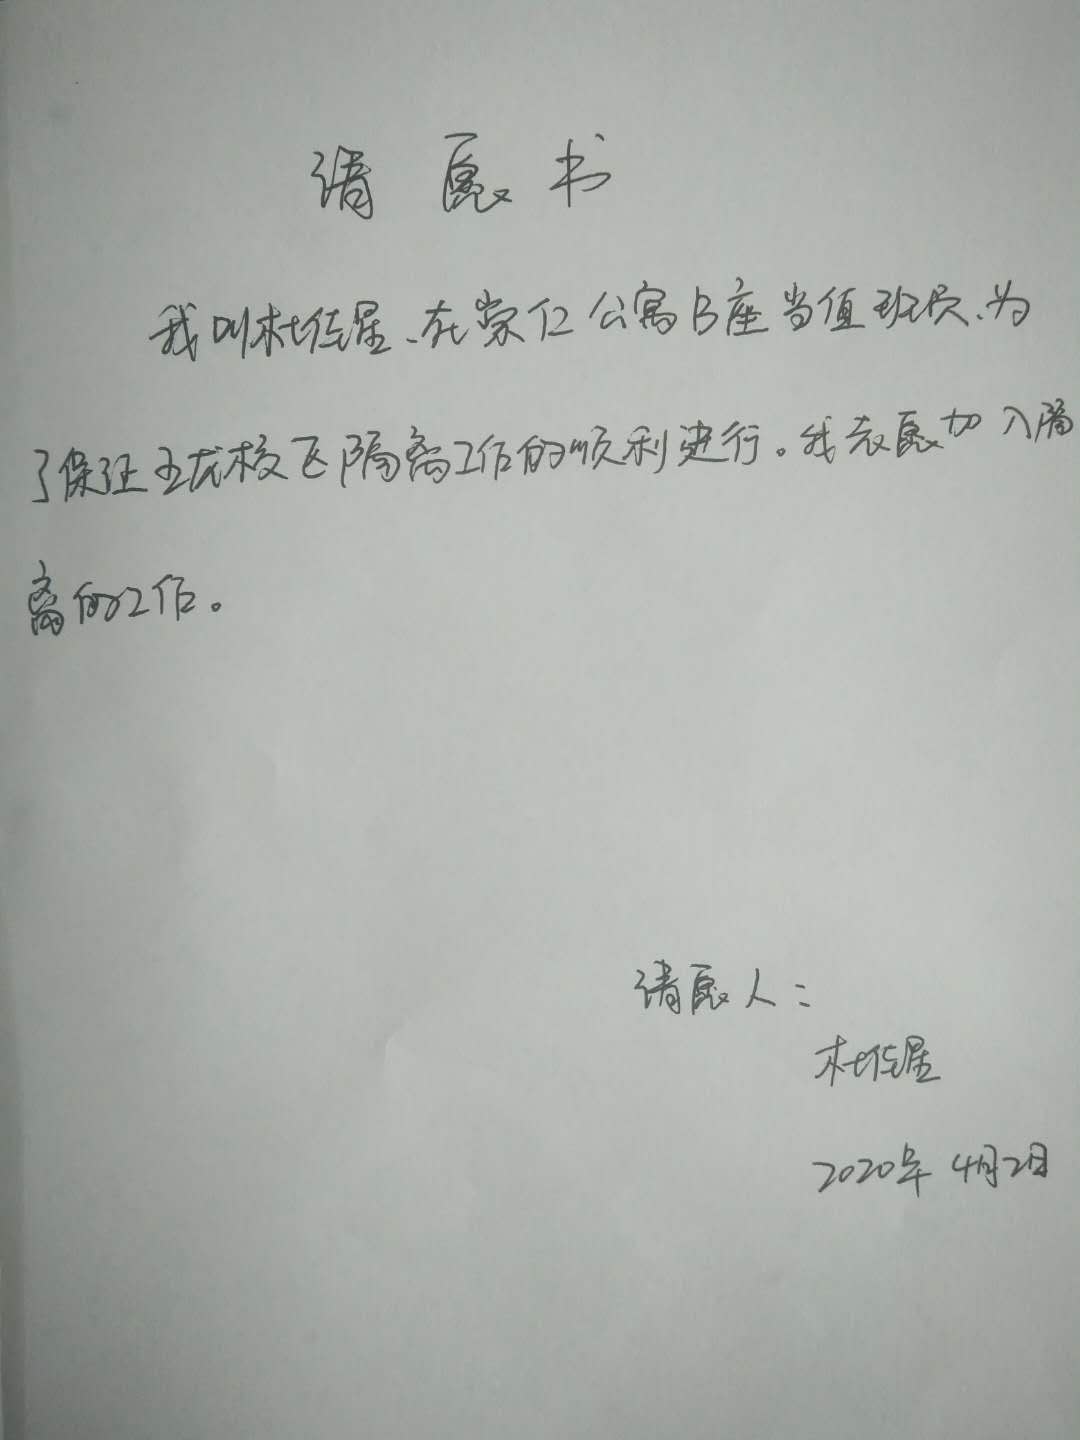 请愿书
我叫杜佐星、在崇仁公寓B座当值班员、为
了保证王龙校区隔离工作的顺利进行。我志愿加入隔
离的工作。
请愿人：
杜佐星
2020年4月2日